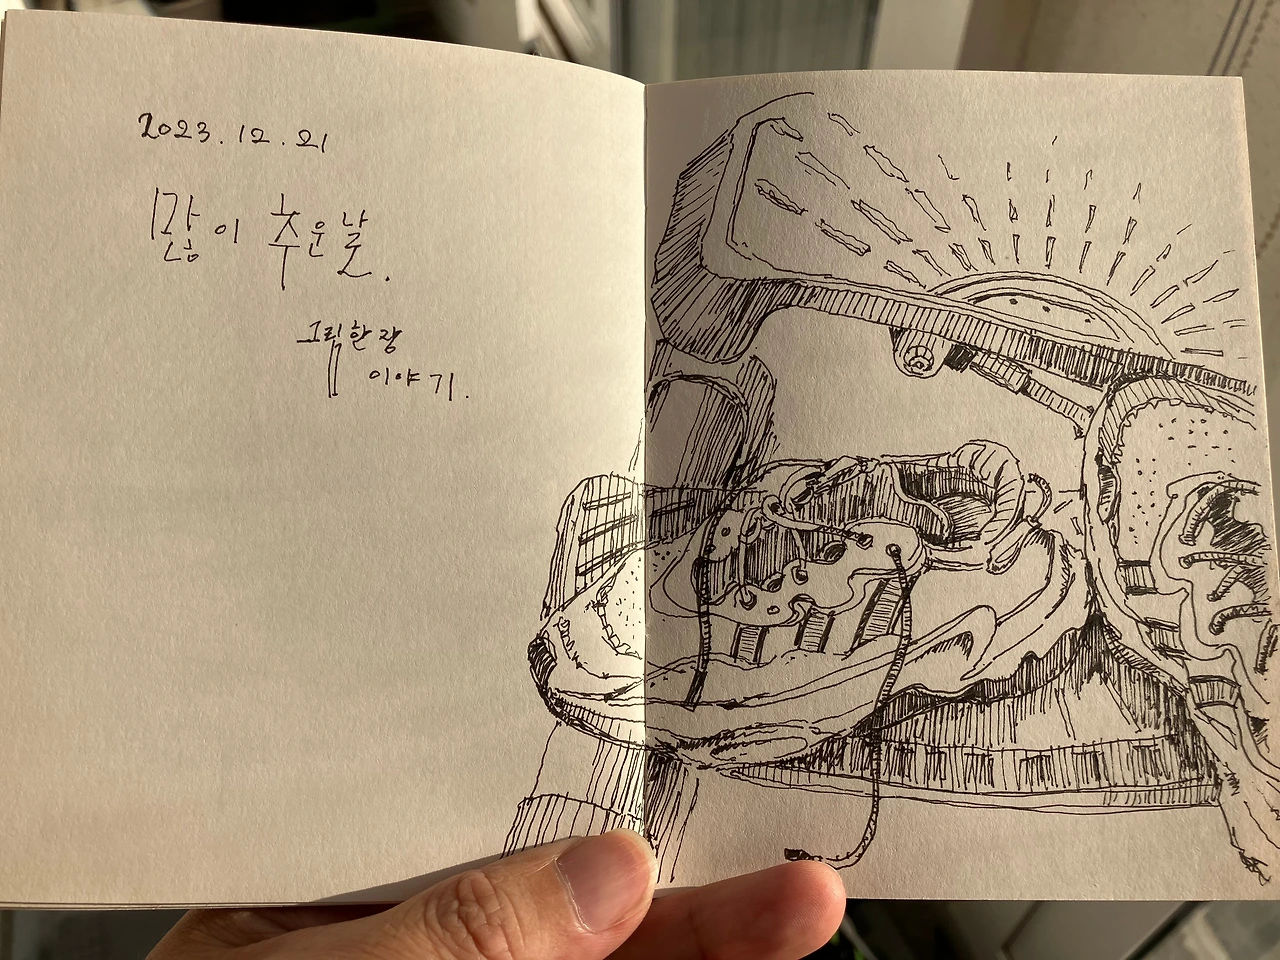 2023.12.21
많이 추운날.
그림한장
이야기.